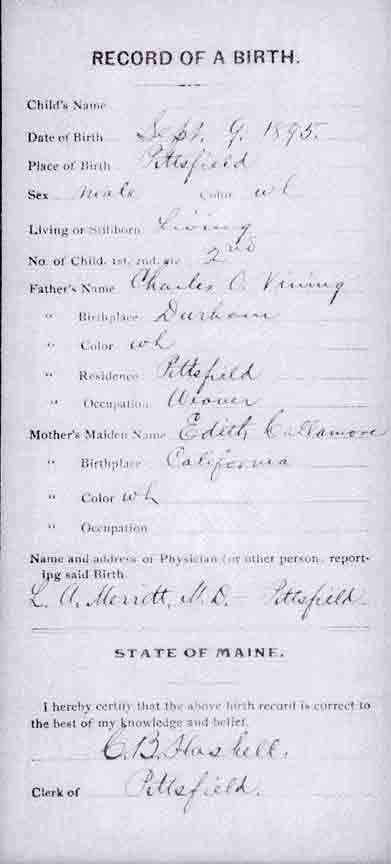 RECORD OF A BIRTH.
Child's Name
Date of Birth Sept. 9. 1895.
Place of Birth Pittsfield
Sex male Color wh
Living or Stillborn Living
No. of Child, 1st, 2nd, etc 2nd
Father's Name Charles O. Vining
" Birthplace Durham
" Color wh
" Residence Pittsfield
" Occupation Weaver
Mother's Maiden Name Edith Callamore
" Birthplace California
" Color wh
" Occupation
Name and address of Physician (or other person, report-
ing said Birth
L. A. Merritt, M.D. - Pittsfield.
STATE OF MAINE.
I hereby certify that the above birth record is correct to
the best of my knowledge and belief.
C. B. Haskell.
Clerk of Pittsfield.